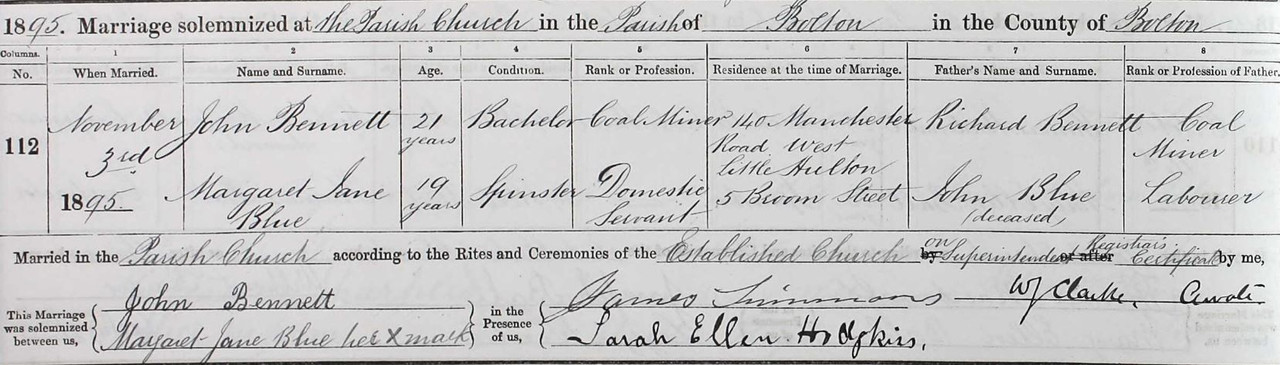 1895. Marriage solemnized at the Parish Church in the Parish of Bolton in the County of Bolton
Columns. 1 2 3 4 5 6 7 8
No. When Married. Name and Surname. Age. Condition. Rank or Profession. Residence at the time of Marriage. Father's Name and Surname. Rank or Profession of Father.
112
November
3rd
1895.
John Bennett
21
years
Bachelor
Coal Miner
140 Manchester
Road West
Little Hulton
Richard Bennett
Coal
Miner
Margaret Jane
Blue
19
years
Spinster
Domestic
Servant
5 Broom Street
John Blue
(deceased)
Labourer
Married in the Parish Church according to the Rites and Ceremonies of the Established Church by on Superintendent or after Registrar's Certificate by me,
This Marriage
was solemnized
between us,
John Bennett
Margaret Jane Blue her X mark
in the
Presence
of us,
James Simmons
Sarah Ellen Hodgkins,
W J Clarke, Curate.